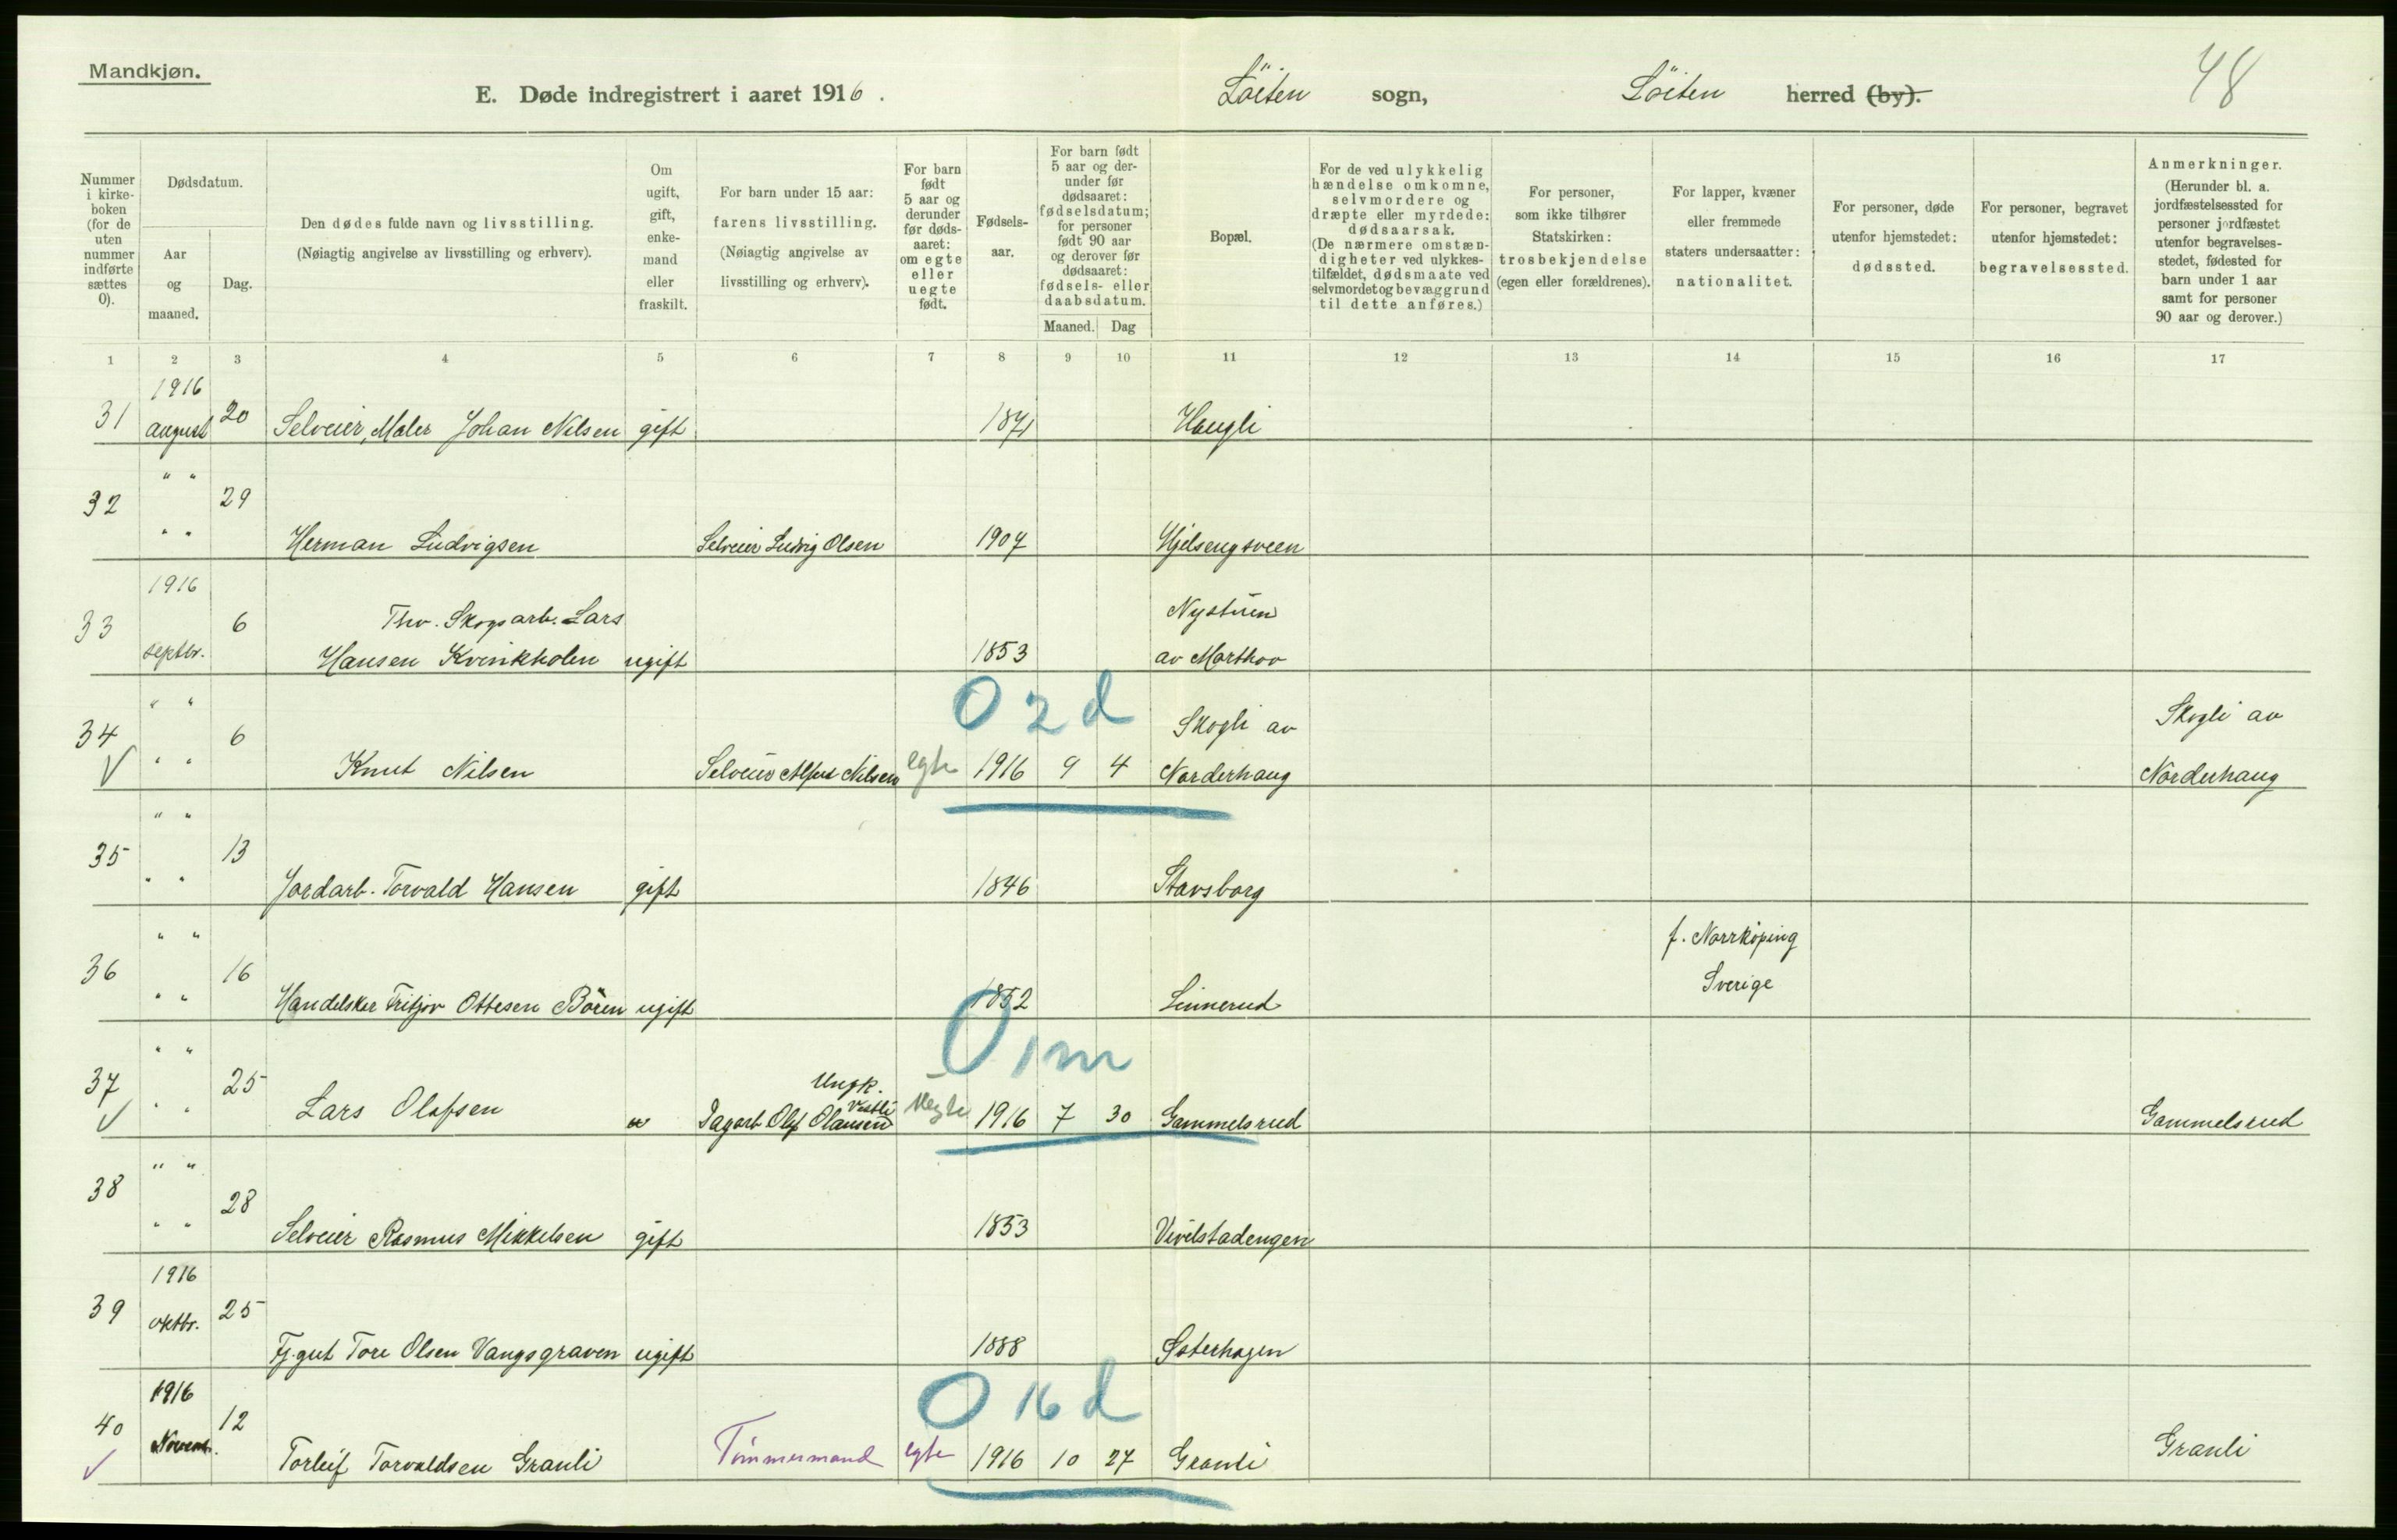 Mandkjøn.
E. Døde indregistrert i aaret 1916. Löiten sogn, Löiten herred (by).
48
Nummer i kirkeboken (for de uten nummer indførte sættes 0).
Dødsdatum.
Aar og maaned.
Dag.
Den dødes fulde navn og livsstilling.
(Nøiagtig angivelse av livsstilling og erhverv).
Om ugift, gift, enkemand eller fraskilt.
For barn under 15 aar: farens livsstilling.
(Nøiagtig angivelse av livsstilling og erhverv).
For barn født 5 aar og derunder før dødsaaret: om egte eller uegte født.
Fødselsaar.
For barn født 5 aar og derunder før dødsaaret: fødselsdatum; for personer født 90 aar og derover før dødsaaret: fødsels- eller daabsdatum.
Maaned. Dag
Bopæl.
For de ved ulykkelig hændelse omkomne, selvmordere og dræpte eller myrdede: dødsaarsak.
(De nærmere omstændigheter ved ulykkestilfældet, dødsmaate ved selvmordet og bevæggrund til dette anføres.)
For personer, som ikke tilhører Statskirken: trosbekjendelse (egen eller forældrenes).
For lapper, kvæner eller fremmede staters undersaatter: nationalitet.
For personer, døde utenfor hjemstedet: dødssted.
For personer, begravet utenfor hjemstedet: begravelsessted.
Anmerkninger.
(Herunder bl. a. jordfæstelsessted for personer jordfæstet utenfor begravelsesstedet, fødested for barn under 1 aar samt for personer 90 aar og derover.)
1 2 3 4 5 6 7 8 9 10 11 12 13 14 15 16 17
1916
31 august 20 Selveier, Maler Johan Nilsen gift 1871 Haugli
" "
32 " " 29 Herman Ludvigsen Selveier Ludvig Olsen 1907 Hjelsengsveen
1916
Thv. Skogsarb. Lars Nystuen
33 septbr. 6 Hansen Kvinkholen ugift 1853 av Marthov
0 2 d
" " Skogli av Skogli av
34 " " 6 Knut Nilsen Selveier Alfred Nilsen egte 1916 9 4 Norderhaug Norderhaug
" "
35 " " 13 Jordarb. Torvald Hansen gift 1846 Stavsborg
" " f. Norrköping
36 " " 16 Handelskar Fritjov Ottesen Boren ugift 1852 Linnerud Sverige
0 1 m
" " Ungk.
37 " " 25 Lars Olafsen Dagarb Olaf Olausen Vestli Uegte 1916 7 30 Gammelsrud Gammelsrud
" "
38 " " 28 Selveier Rasmus Mikkelsen gift 1853 Vivilstadengen
1916
39 oktbr. 25 Fj.gut Tore Olsen Vangsgraven ugift 1888 Sæterhagen
1916
0 16 d
40 Novem. 12 Torleif Torvaldsen Granli Tömmermand egte 1916 10 27 Granli Granli